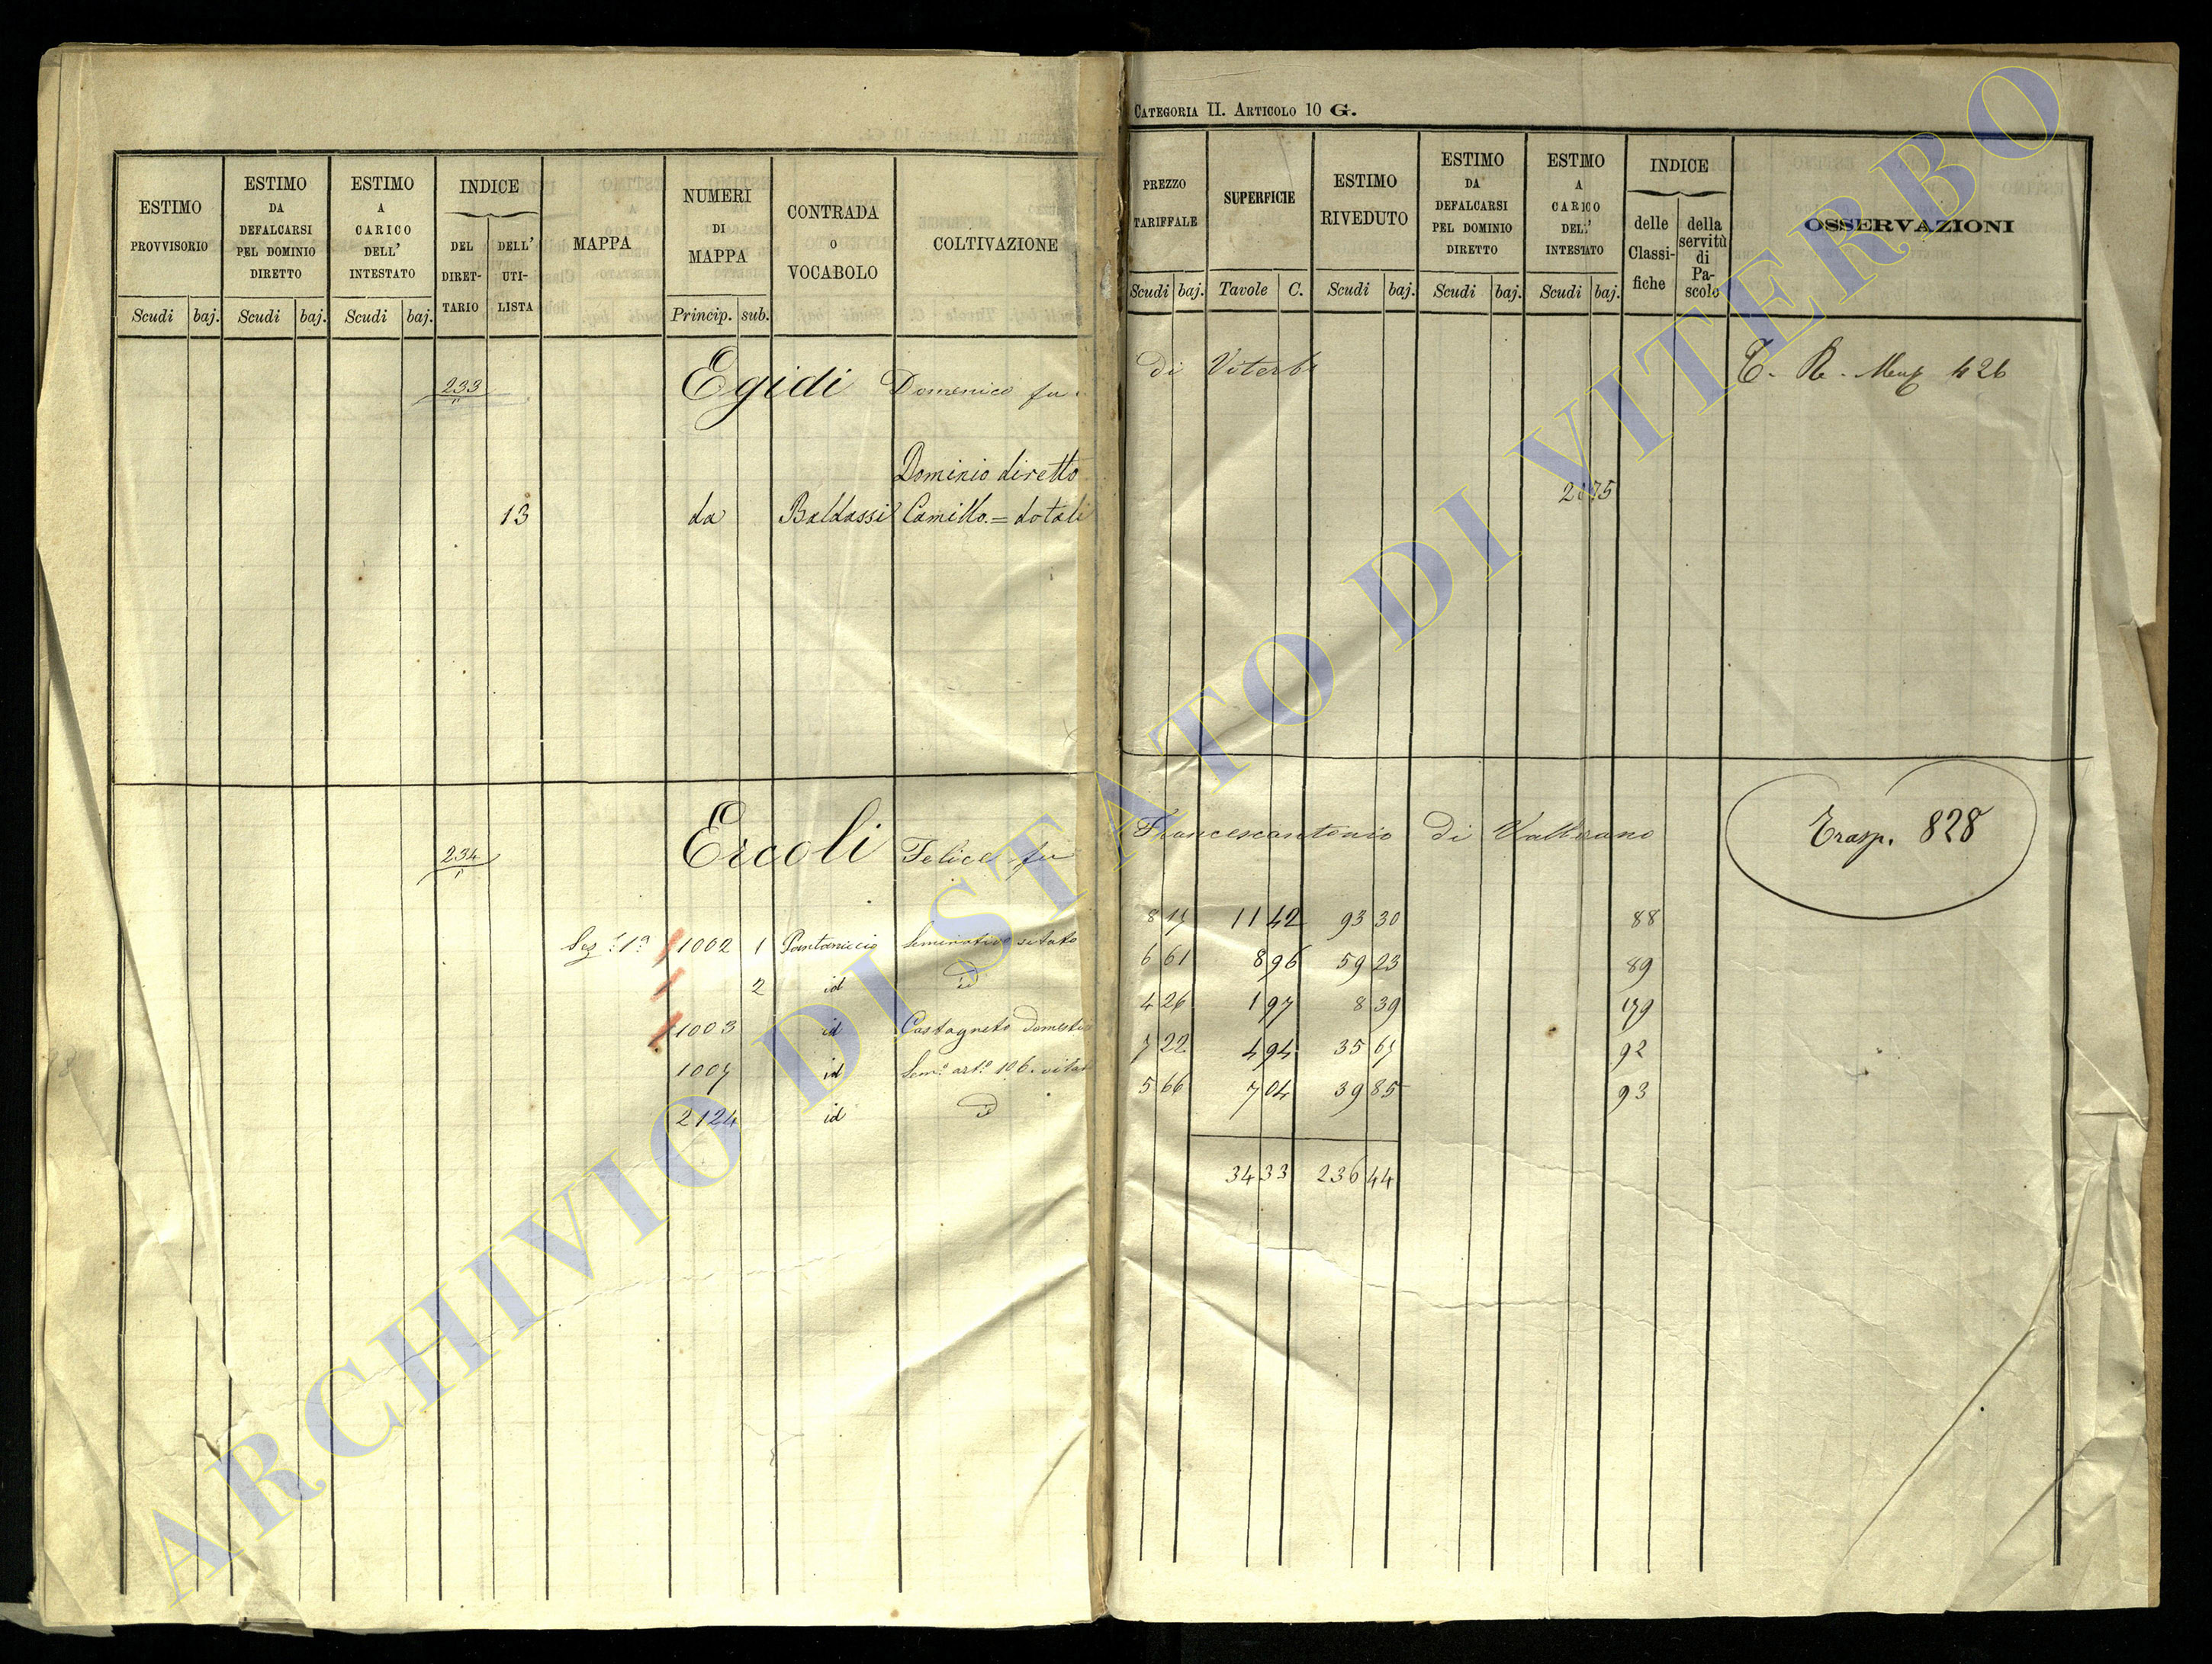 CATEGORIA II. ARTICOLO 10 G.
ESTIMO PROVVISORIO Scudi baj.
ESTIMO DA DEFALCARSI PEL DOMINIO DIRETTO Scudi baj.
ESTIMO A CARICO DELL' INTESTATO Scudi baj.
INDICE DEL DIRETTARIO DELL' UTILISTA
MAPPA
NUMERI DI MAPPA Princip. sub.
CONTRADA O VOCABOLO
COLTIVAZIONE
PREZZO TARIFFALE Scudi baj.
SUPERFICIE Tavole C.
ESTIMO RIVEDUTO Scudi baj.
ESTIMO DA DEFALCARSI PEL DOMINIO DIRETTO Scudi baj.
ESTIMO A CARICO DELL' INTESTATO Scudi baj.
INDICE delle Classifiche della servitù di Pascolo
OSSERVAZIONI
233 Egidi Domenico fu di Viterbo 426
Dominio diretto
13 da Baldassi Camillo = dotali
234 Ercoli Felice fu Francescantonio di Vallerano Trasp. 828
Sez. 1ª 1002 1 Pantaniccio Seminativo vitato 8 17 11 42 93 30 88
2 id id 6 61 8 96 59 23 89
1003 id Castagneto domestico 4 26 1 97 8 39 179
1007 id Sem.º art.º 106. vitat 7 22 4 94 35 67 92
2124 id id 5 66 7 04 39 85 93
34 33 236 44
ARCHIVIO DI STATO DI VITERBO